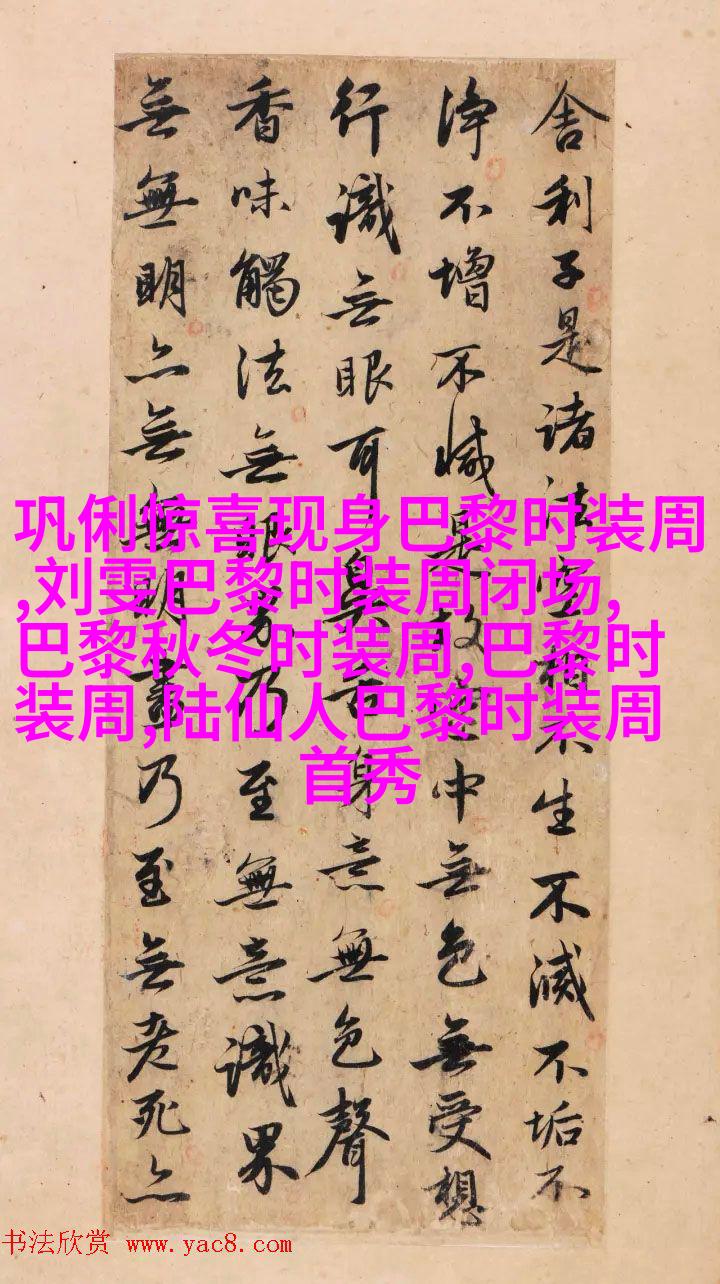 舍利子是诸法空相不生不滅不垢不
净不增不减是故空中無色無受想
行識無眼耳鼻舌身意無色聲
香味觸法無眼界乃至無意識界
無無明亦無無明盡乃至無老死亦
巩俐惊喜现身巴黎时装周
,刘雯巴黎时装周闭场,
巴黎秋冬时装周,巴黎时
装周,陆仙人巴黎时装周
首秀
书法欣赏 www.yac8.com